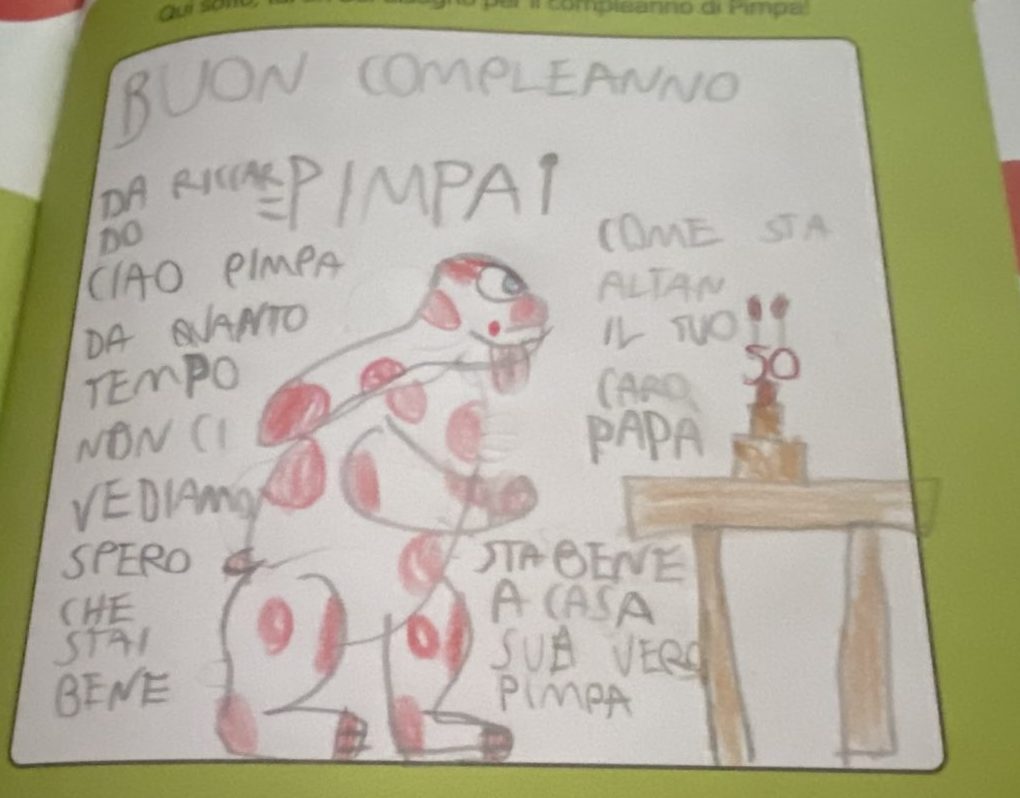 Qui sotto, fai un bel disegno per il compleanno di Pimpa!
BUON COMPLEANNO
PIMPA!
DA RICCAR=
DO
CIAO PIMPA
DA QUANTO
TEMPO
NON CI
VEDIAMO
SPERO
CHE
STAI
BENE
COME STA
ALTAN
IL TUO
CARO
PAPA
50
STA BENE
A CASA
SUA VERO
PIMPA